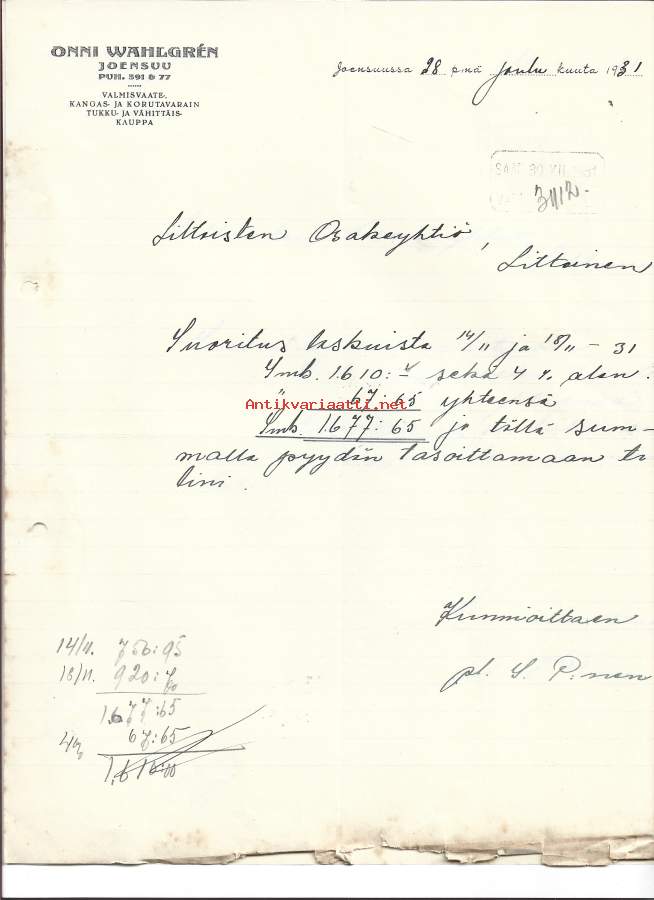 ONNI WAHLGRÉN
JOENSUU
PUH. 391 & 77
VALMISVAATE-,
KANGAS- JA KORUTAVARAIN
TUKKU- JA VÄHITTÄIS-
KAUPPA
Joensuussa 28 p:nä joulu kuuta 1931
SAAP. 30 XII. 1931
3112.-
Littoisten Osakeyhtiö,
Littoinen
Suoritus laskuista 14/11 ja 18/11 - 31
Smk. 1610:- sekä 4 % alen.
" 67:65 yhteensä
Antikvariaatti.net
Smk. 1.677:65 ja tällä sum-
malla pyydän tasoittamaan ti
lini.
Kunnioittaen
pl. S. P:nen
14/11. 756:95
18/11. 920:70
1.677:65
4% 67:65
1.610:00